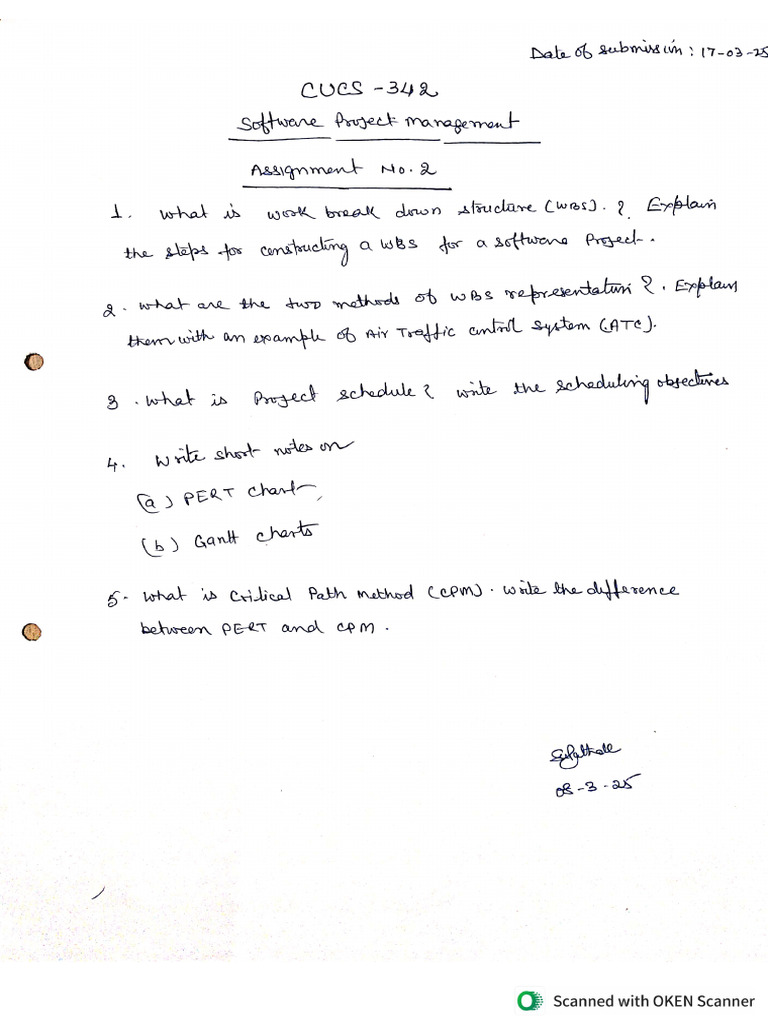 Date of submission: 17-03-25
CUCS - 342
Software Project Management
Assignment No. 2
1. What is work break down structure (WBS). ? Explain
the steps for constructing a WBS for a software Project.
2. What are the two methods of WBS representation ?. Explain
them with an example of Air Traffic control system (ATC).
3. What is Project schedule? write the scheduling objectives
4. Write short notes on
(a) PERT chart
(b) Gantt charts
5. What is Critical Path Method (CPM). write the difference
between PERT and CPM.
08-3-25
Scanned with OKEN Scanner